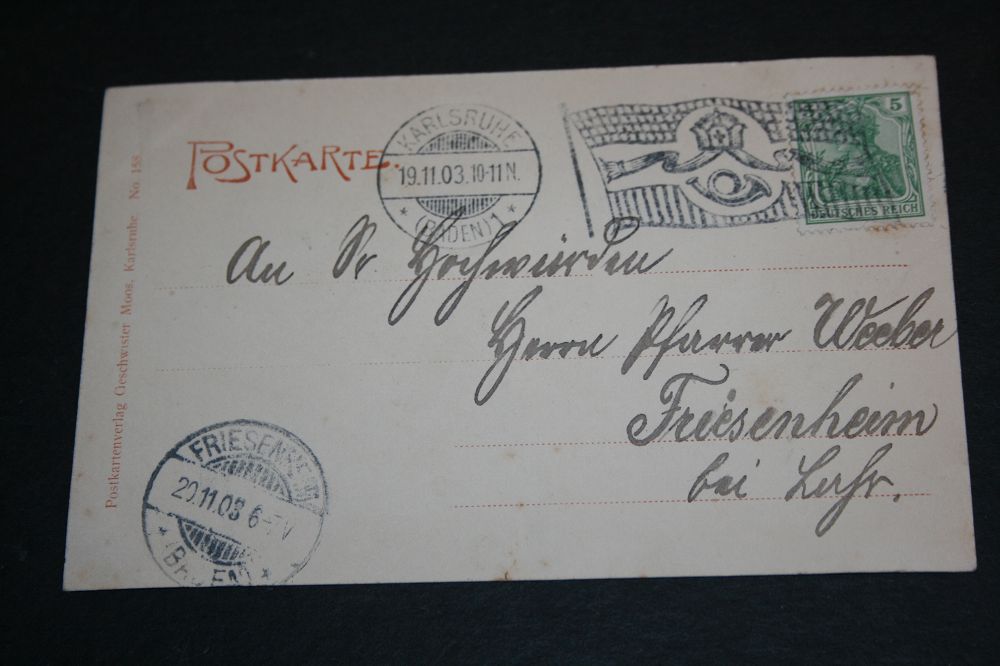 POSTKARTE.
KARLSRUHE
19.11.03. 10-11 N.
* (BADEN) 1 *
5
DEUTSCHES REICH
An Sr Hochwürden
Herrn Pfarrer Weeber
Friesenheim
bei Lahr.
FRIESENHEIM
20.11.03 6-7V
* (BADEN) *
Postkartenverlag Geschwister Moos, Karlsruhe. No. 158